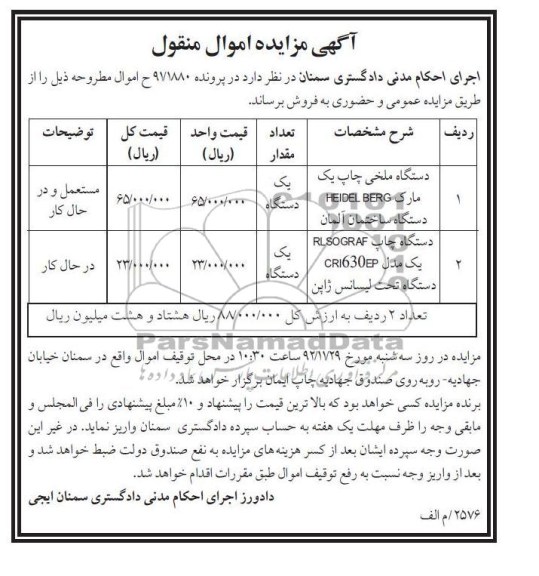 آگهی مزایده اموال منقول
اجرای احکام مدنی دادگستری سمنان در نظر دارد در پرونده ۹۷۱۸۸۰ ح اموال مطروحه ذیل را از
طریق مزایده عمومی و حضوری به فروش برساند.
ردیف شرح مشخصات تعداد مقدار قیمت واحد (ریال) قیمت کل (ریال) توضیحات
۱ دستگاه ملخی چاپ یک مارک HEIDEL BERG دستگاه ساختمان آلمان یک دستگاه ۶۵/۰۰۰/۰۰۰ ۶۵/۰۰۰/۰۰۰ مستعمل و در حال کار
۲ دستگاه چاپ RLSOGRAF یک مدل CRI630EP دستگاه تحت لیسانس ژاپن یک دستگاه ۲۳/۰۰۰/۰۰۰ ۲۳/۰۰۰/۰۰۰ در حال کار
تعداد ۲ ردیف به ارزش کل ۸۸/۰۰۰/۰۰۰ ریال هشتاد و هشت میلیون ریال
ParsNamadData
مزایده در روز سه شنبه مورخ ۹۲/۱۱/۲۹ ساعت ۱۰:۳۰ در محل توقیف اموال واقع در سمنان خیابان
جهادیه- روبه روی صندوق جهادیه چاپ ایمان برگزار خواهد شد.
برنده مزایده کسی خواهد بود که بالا ترین قیمت را پیشنهاد و ۱۰٪ مبلغ پیشنهادی را فی المجلس و
مابقی وجه را ظرف مهلت یک هفته به حساب سپرده دادگستری سمنان واریز نماید. در غیر این
صورت وجه سپرده ایشان بعد از کسر هزینه های مزایده به نفع صندوق دولت ضبط خواهد شد و
بعد از واریز وجه نسبت به رفع توقیف اموال طبق مقررات اقدام خواهد شد.
دادورز اجرای احکام مدنی دادگستری سمنان ایجی
۲۵۷۶/م الف